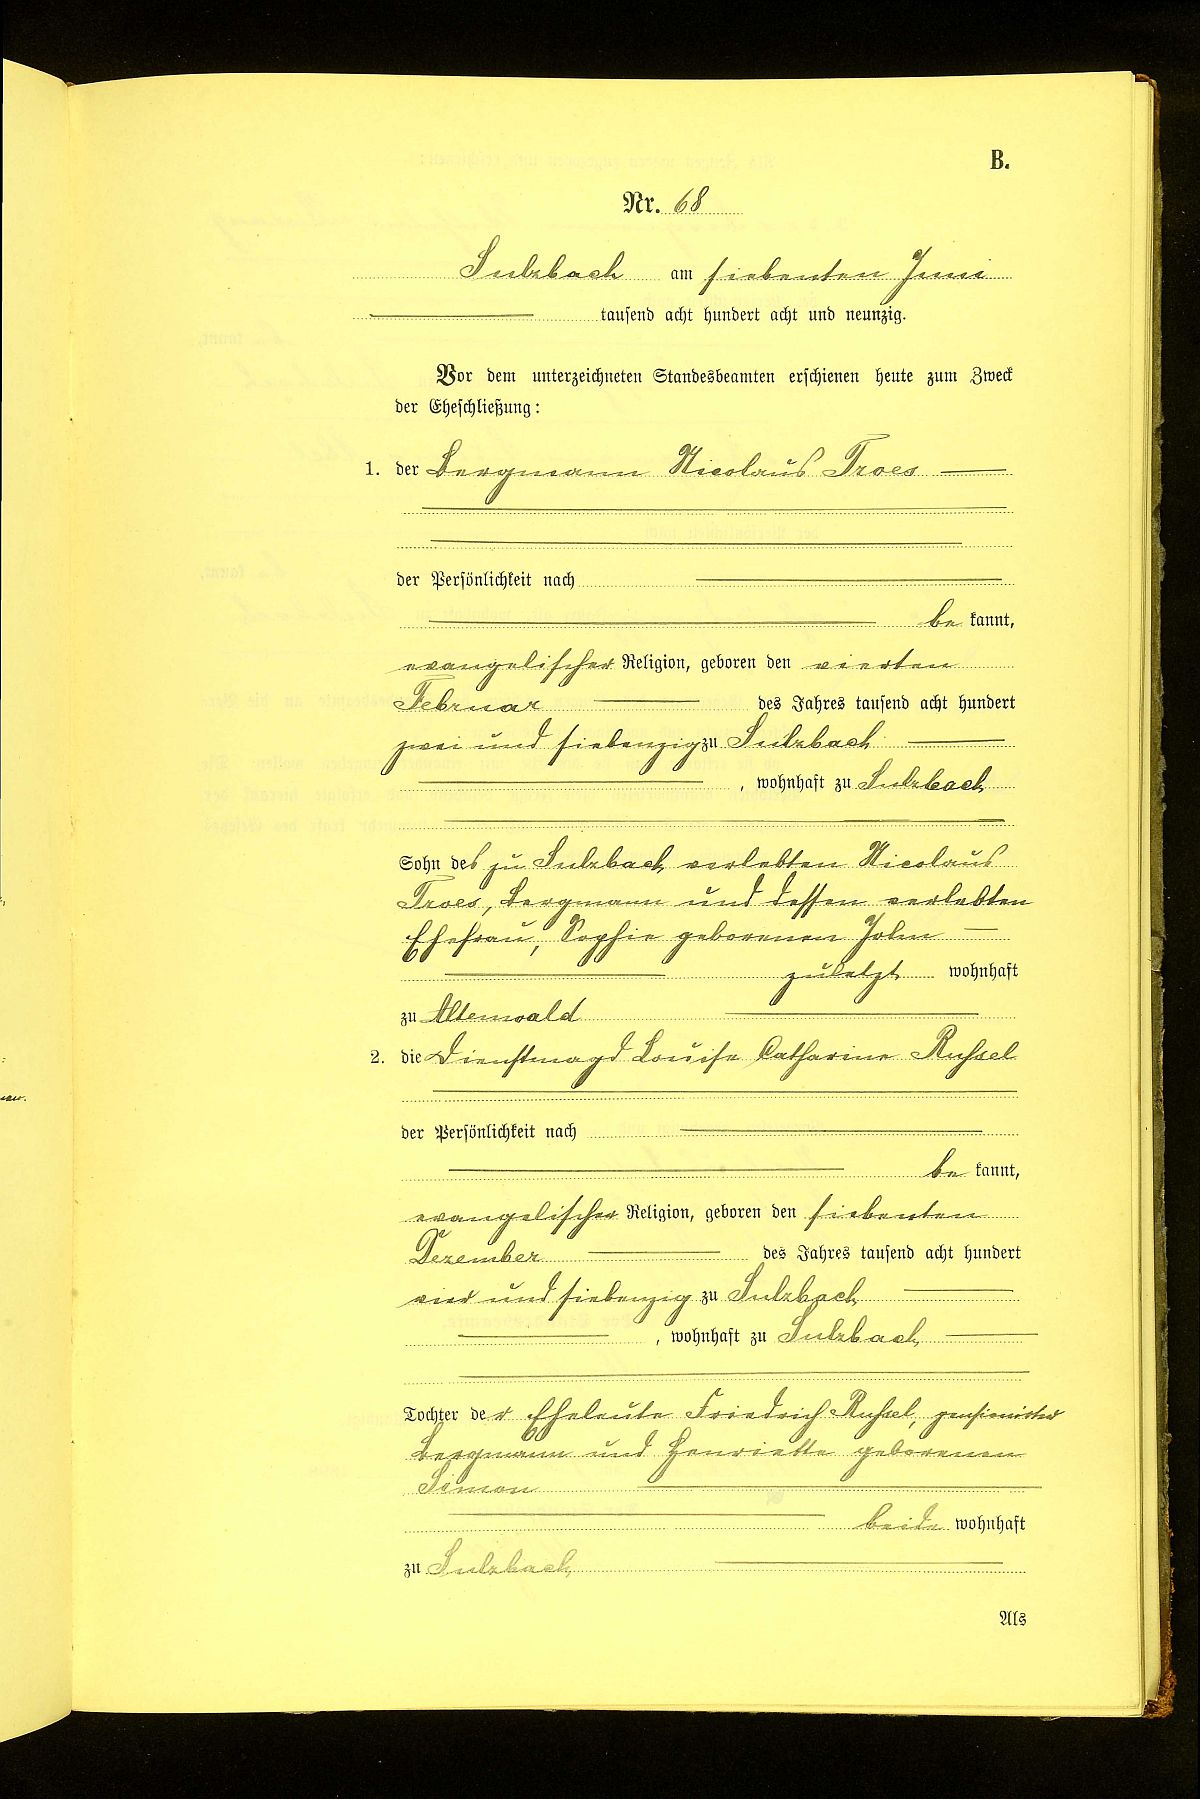 B.
Nr. 68
Sulzbach am siebenten Juni
tausend acht hundert acht und neunzig.
Vor dem unterzeichneten Standesbeamten erschienen heute zum Zweck
der Eheschließung:
1. der Bergmann Nicolaus Troes
der Persönlichkeit nach
be kannt,
evangelischer Religion, geboren den vierten
Februar des Jahres tausend acht hundert
zwei und siebenzig zu Sulzbach
, wohnhaft zu Sulzbach
Sohn des zu Sulzbach verlebten Nicolaus
Troes, Bergmann und dessen verlebten
Ehefrau, Sophie geborenen John
zuletzt wohnhaft
zu Altenwald
2. die Dienstmagd Louise Catharine Russel
der Persönlichkeit nach
be kannt,
evangelischer Religion, geboren den siebenten
Dezember des Jahres tausend acht hundert
vier und siebenzig zu Sulzbach
, wohnhaft zu Sulzbach
Tochter der Eheleute Friedrich Russel, pensionirter
Bergmann und Henriette geborenen
Simon
beide wohnhaft
zu Sulzbach
Als